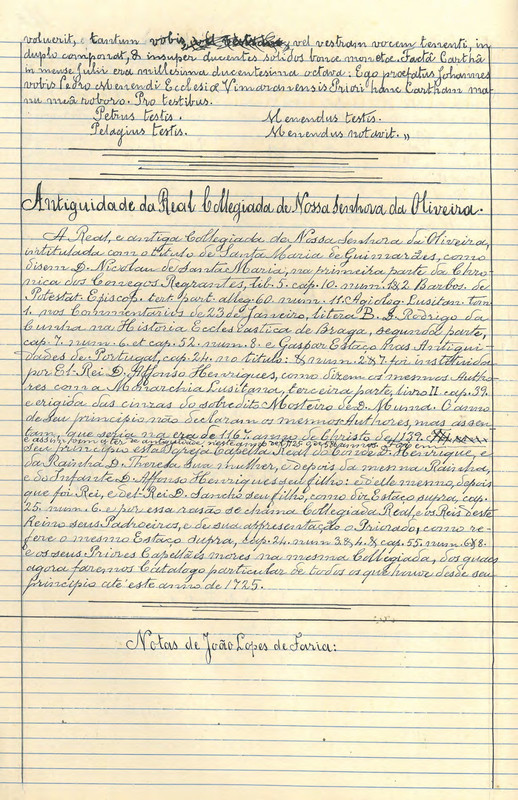 voluerit, & tantum vobis, vel vestram vocem tenenti, in
duplo componat, & insuper ducentos solidos bonæ monetæ. Factâ Carthâ
in mense Julii era millesima ducentesima octava. Ego præfatus Johannes
vobis Pedro Menendi Ecclesiæ Vimaranensis Priori hanc Cartham ma-
nu meâ roboro. Pro testibus.
Petrus testis. Menendus testis.
Pelagius testis. Menendus notavit. „
Antiguidade da Real Collegiada de Nossa Senhora da Oliveira.
A Real, e antiga Collegiada de Nossa Senhora da Oliveira,
intitulada com o titulo de Santa Maria de Guimarães, como
disem D. Nicolau de Santa Maria, na primeira parte da Chro-
nica dos Conegos Regrantes, lib. 5. cap. 10. num. 1 & 2 Barbos. de
Potestat. Episcop. tert. part. alleg. 60. num. 11. Agiolog. Lusitan. tom.
1. nos Commentarios de 23 de Janeiro, litera B. D. Rodrigo da
Cunha na Historia Ecclesiastica de Braga, segunda parte,
cap. 7. num. 6. et cap. 52. num. 8. e Gaspar Estaço nas Antigui-
dades de Portugal, cap. 24. no titulo: & num. 2 & 7 foi instituida
por El-Rei D. Affonso Henriques, como dizem os mesmos Autho-
res com a Monarchia Lusitana, terceira parte, livro 11. cap. 39.
e erigida das cinzas do sobredito Mosteiro de D. Muma. O anno
de seu principio não declaram os mesmos Authores, mas assen-
tam, que seria na era de 1167. anno de Christo de 1139.
seu principio esta Igreja Capella Real do Conde D. Henrique, e
da Rainha D. Thereza sua mulher, e depois da mesma Rainha,
e do Infante D. Affonso Henriques seu filho: e d'elle mesmo, depois
que foi Rei, e del-Rei D. Sancho seu filho, como diz Estaço supra, cap.
25. num. 6. e por essa rasão se chama Collegiada Real, e os Reis deste
Reino seus Padroeiros, e de sua appresentação o Priorado, como re-
fere o mesmo Estaço supra, cap. 24. num. 3. & 4. & cap. 55. num. 6 & 8.
e os seus Priores Capellães móres na mesma Collegiada, dos quaes
agora faremos Catalogo particular de todos os que houve desde seu
principio até este anno de 1725.
Notas de João Lopes de Faria: